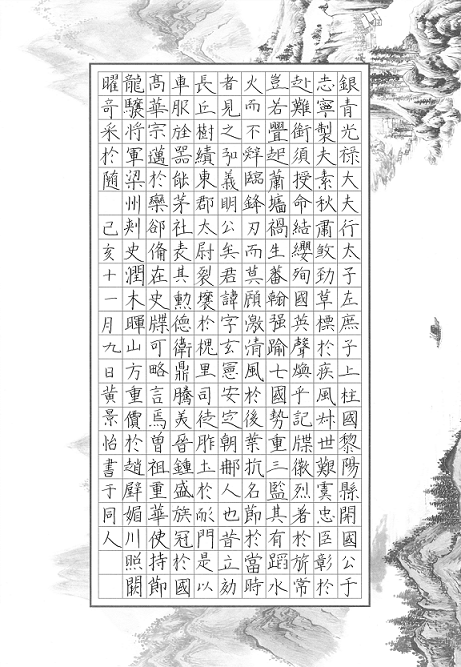 銀青光祿大夫行太子左庶子上柱國黎陽縣開國公于
志寧製夫素秋肅煞勁草標於疾風叔世艱虞忠臣彰於
赴難銜須授命結纓殉國英聲煥乎記牒徽烈著於旂常
豈若釁起蕭墻禍生蕃翰强踰七國勢重三監其有蹈水
火而不辭臨鋒刃而莫顧激清風於後葉抗名節於當時
者見之弘義明公矣君諱字玄憲安定朝那人也昔立効
長丘樹績東郡太尉裂壤於槐里司徒胙土於耏門是以
車服旌器能茅社表其勲德衛鼎騰美晉鍾盛族冠於國
髙華宗邁於欒郤俻在史牒可略言焉曾祖重華使持節
龍驤將軍梁州刾史潤木暉山方重價於趙璧媚川照闕
曜奇采於隨 己亥十一月九日黄景怡書于同人